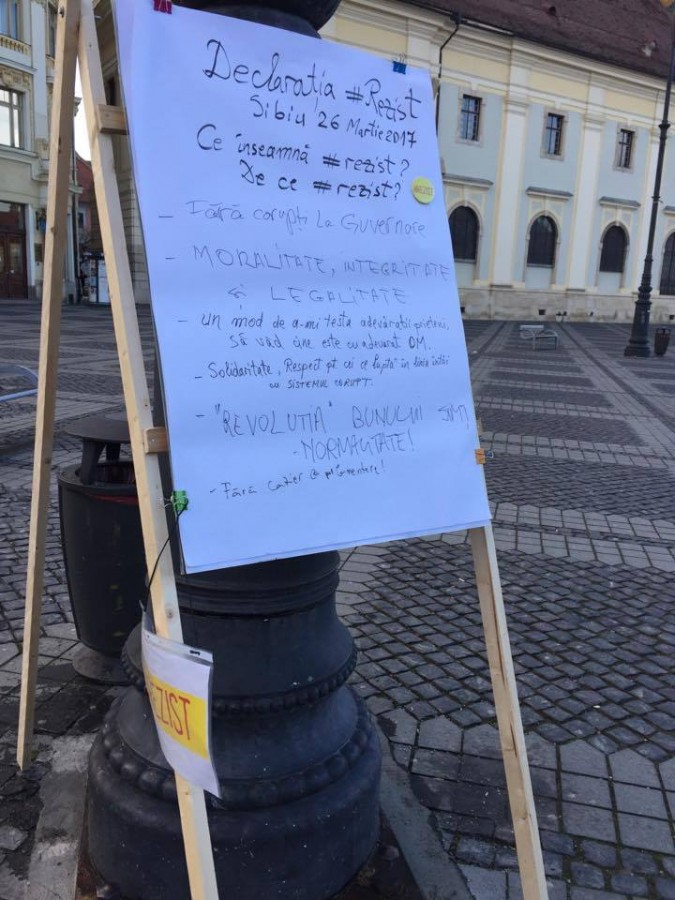 Declarația #Rezist
Sibiu, 26 Martie 2017
Ce înseamnă #rezist?
De ce #rezist?
#REZIST
- Fără corupți la Guvernare
- MORALITATE, INTEGRITATE
și LEGALITATE
- un mod de a-mi testa adevărații prieteni,
să văd cine este cu adevărat OM.
- Solidaritate, Respect pt cei ce luptă în linia întâi
cu SISTEMUL CORUPT.
- "REVOLUȚIA" BUNULUI SIMȚ
- NORMALITATE!
- Fără cazier
EZIST